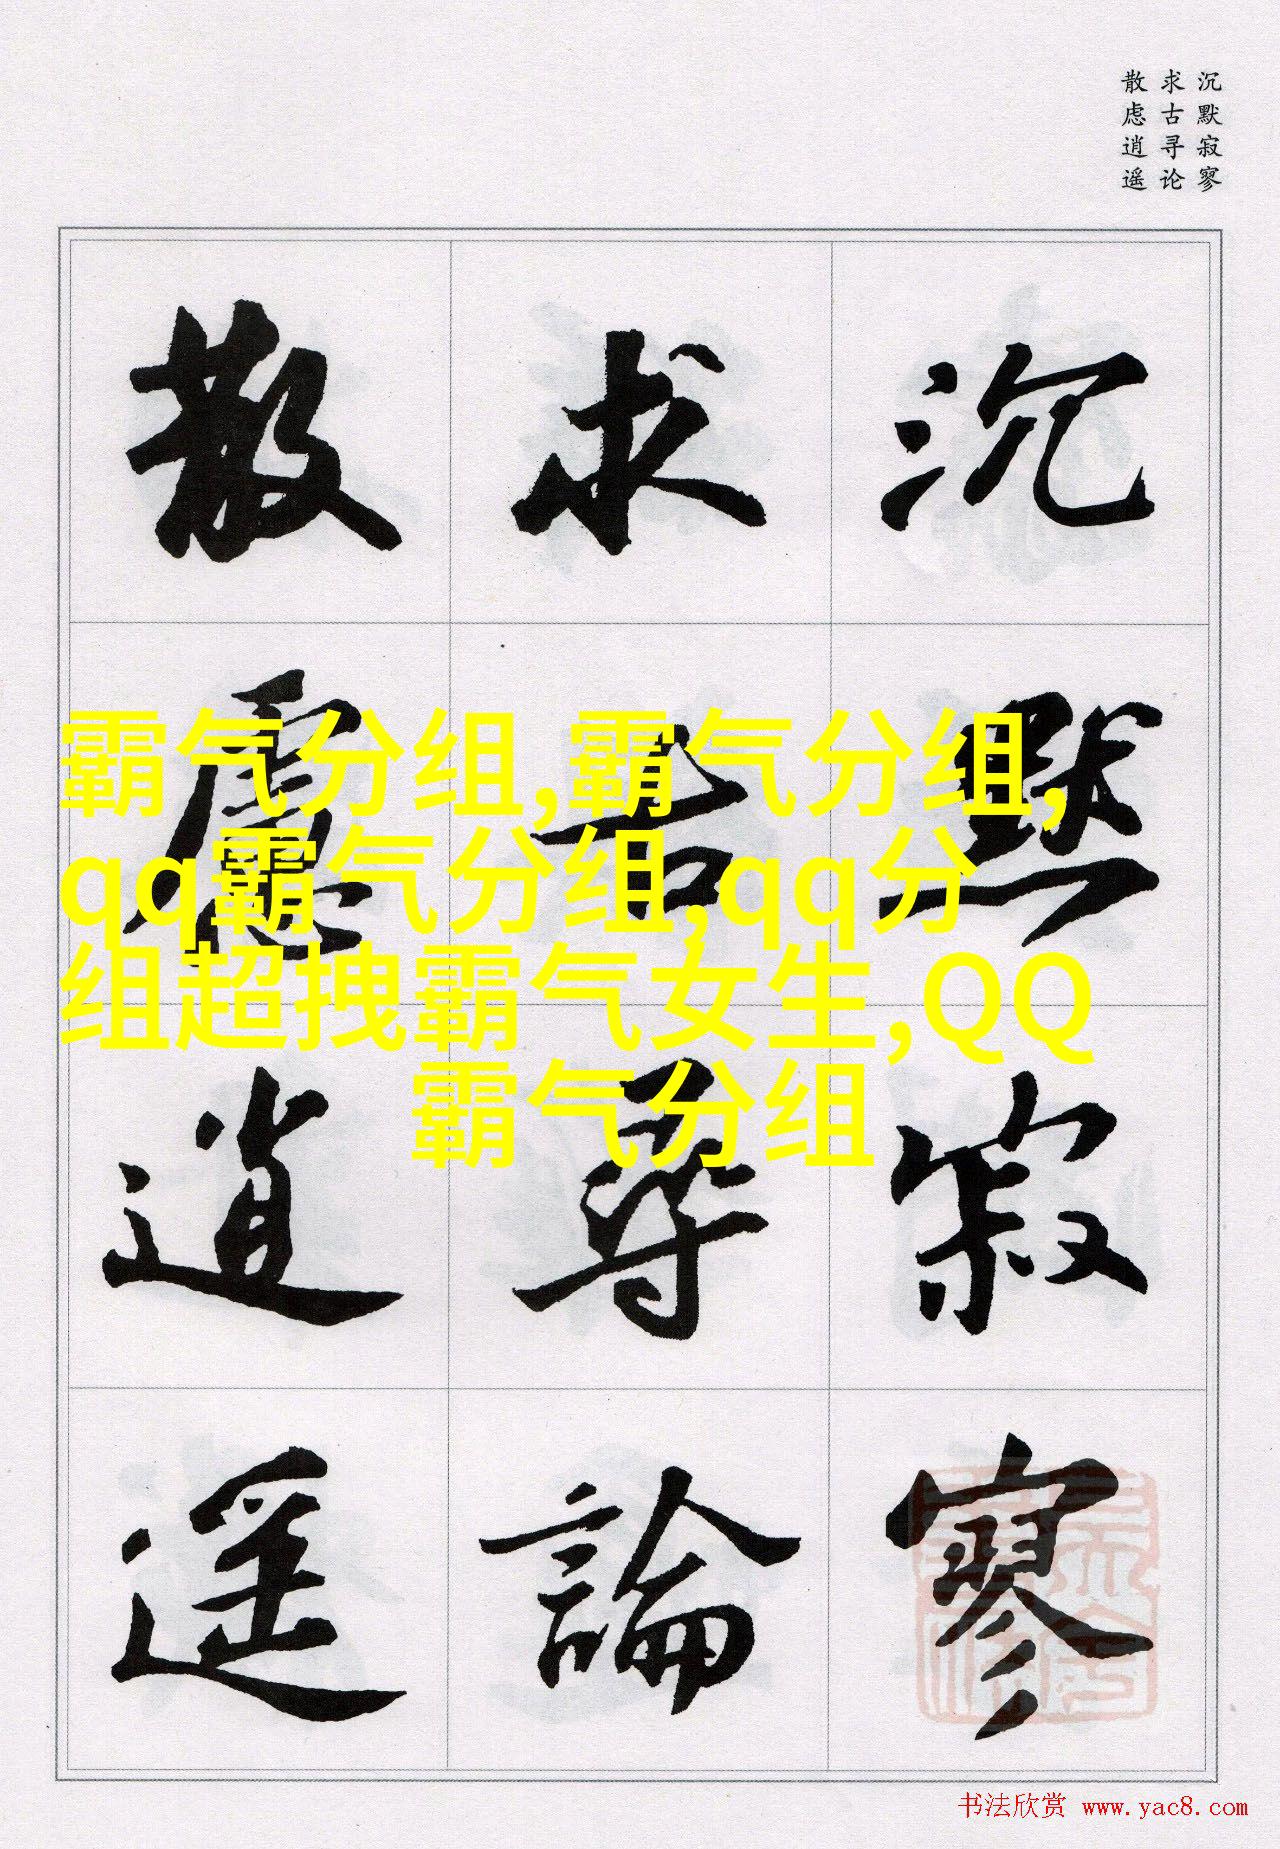 沉默寂寥
求古寻论
散虑逍遥
沉默寂寥
求古尋論
散慮逍遥
霸气分组,霸气分组,
qq霸气分组,qq分
组超拽霸气女生,QQ
霸气分组
书法欣赏 www.yac8.com